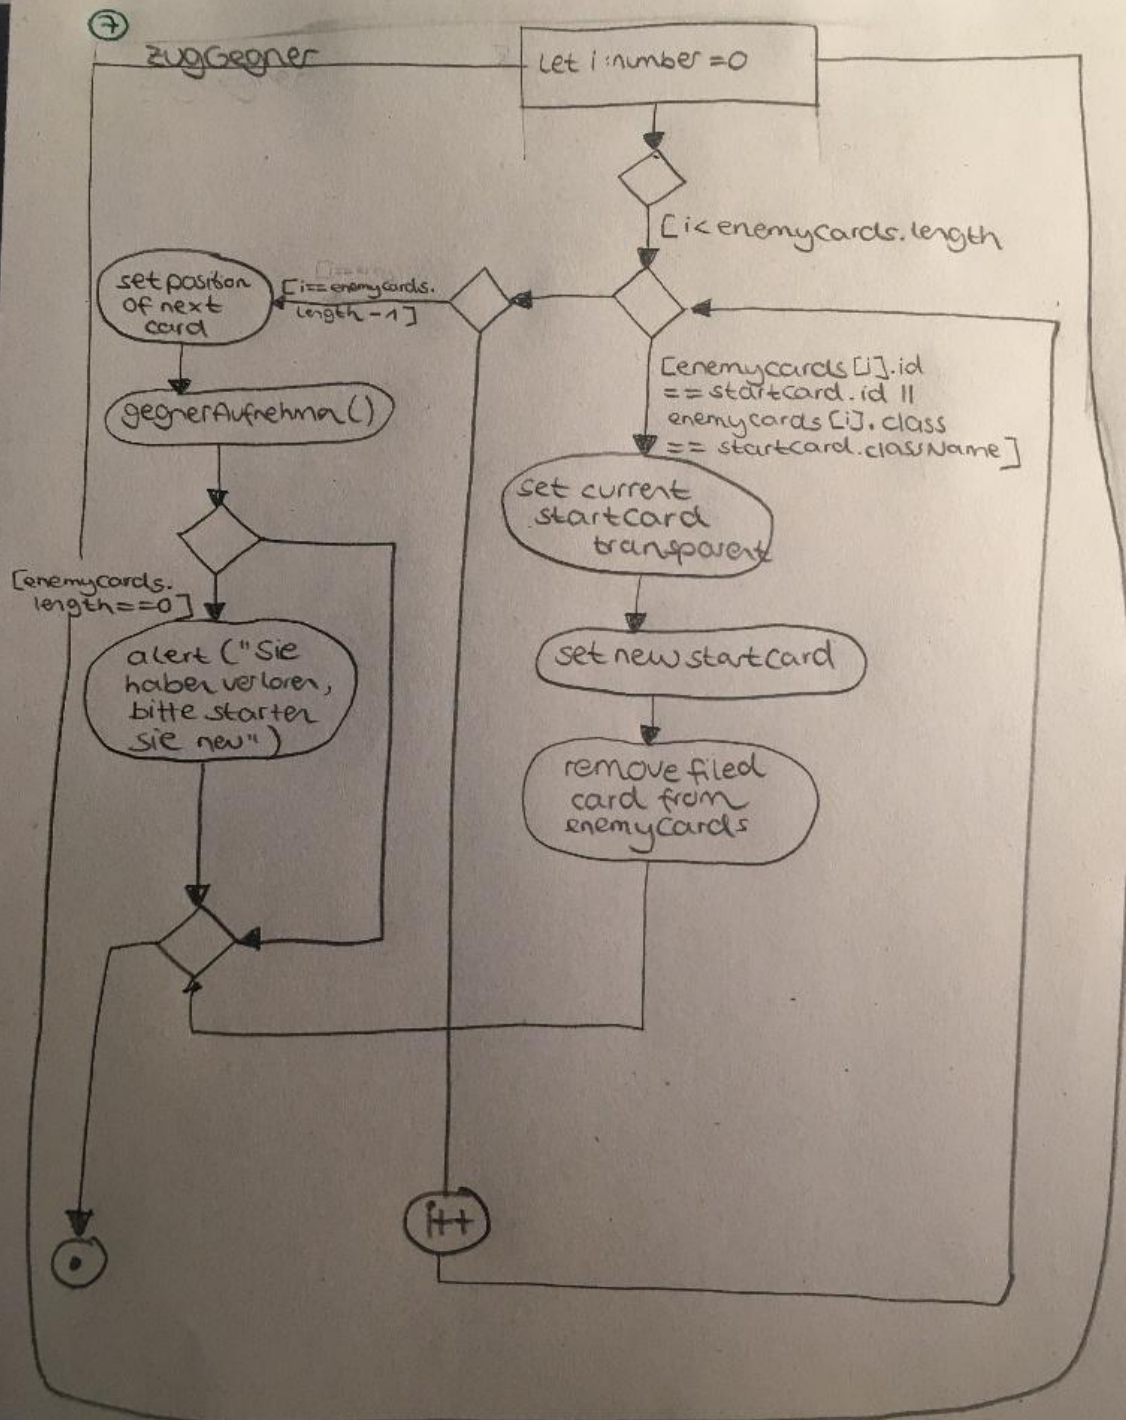 7
zugGegner
Let i:number = 0
[i< enemycards.length
[i== enemycards.
length -1]
set position
of next
card
gegnerAufnehmen()
[enemycards[i].id
== startcard.id ||
enemycards[i].class
== startcard.className]
set current
startcard
transparent
[enemycards.
length==0]
alert ("Sie
haben verloren,
bitte starten
sie neu")
set new startcard
remove filed
card from
enemycards
i++